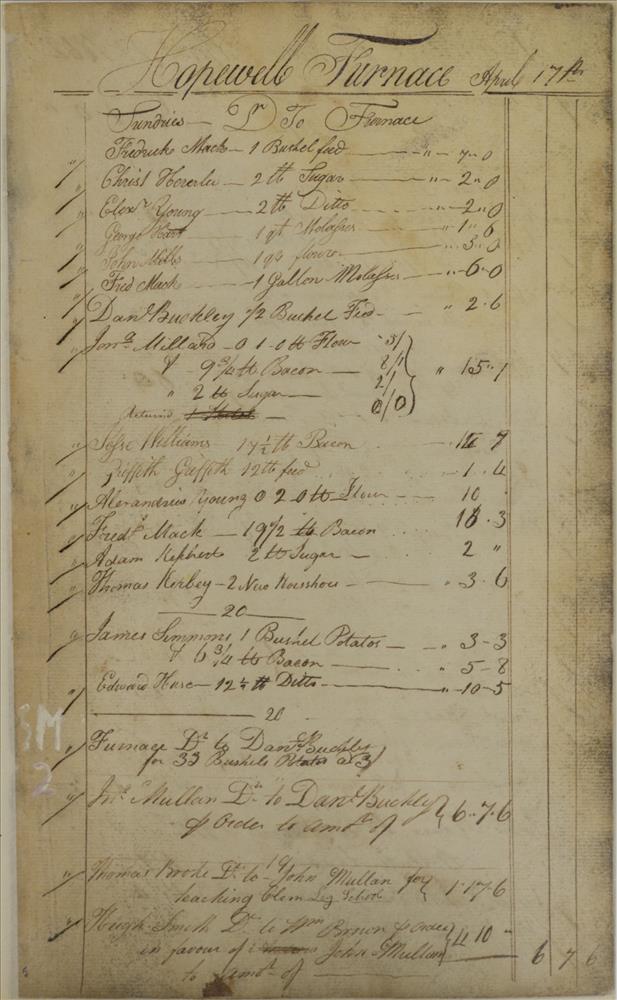 Hopewell Furnace April 17th
Sundries Dr To Furnace
" Fredrick Mack — 1 Bushel feed — " 7 " 0
" Christ — 2 tt Sugar — " 2 " 0
" Elexr Young — 2 tt Ditto — " 2 " 0
George Hart 1 qt Molasses — " 1 " 6
" John 1 qr flower — " 3 " 0
" Fred Mack — 1 Gallon Molasses — " 6 " 0
" Danl Buckley 1/2 Bushel Feed — " 2 " 6
" Jona Millard — 0 1 0 tt Flour 3/
& 9 3/4 tt Bacon —
" 2 tt Sugar — 2/ " 15 " 1
Returnd 0/0
" Jesse Williams 17 1/2 tt Bacon — 14 7
" Griffith Griffith 12 tt feed — 1 . 4
" Alexandrew Young 0 2 0 tt Flour — 10
" Fredk Mack — 19 1/2 tt Bacon 16 . 3
" Adam 2 tt Sugar — 2 "
" Thomas Kirbey — 2 New — " 3 . 6
— 20 —
" James Simmons 1 Bushel Potatos — " 3 - 3
& 6 3/4 tt Bacon — " 5 - 8
" Edward Hare — 12 1/2 tt Ditto — " 10 - 5
— 20
" Furnace Dr to Danl Buckley
for 33 Bushels Potatos at 3/
" Jno Mullan Dr to Danl Buckley
& Order to amt of 6 " 7 . 6
" Thomas Brode Dr to John Mullan for
teaching School 1 " 17 6
" Hugh Smith Dr to Wm Brown & Order
in favour of John Mullan 4 10 "
to amt of — 6 7 6
SM
2